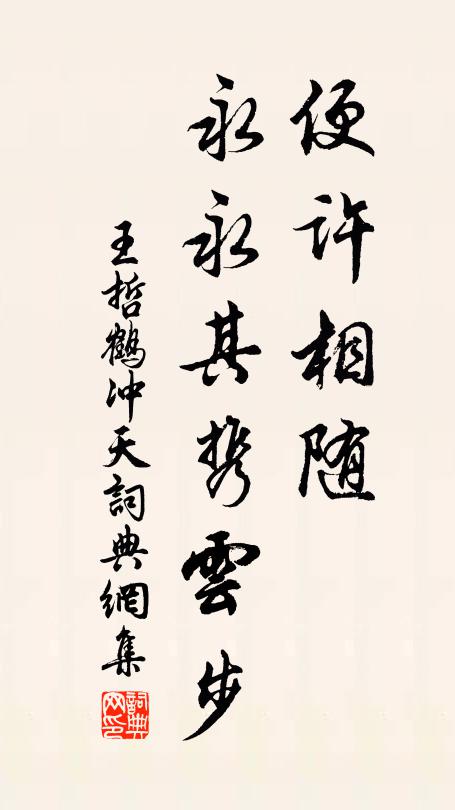 便許相随
永永其携雲步
王哲鶴冲天詞典網集
詞典网印